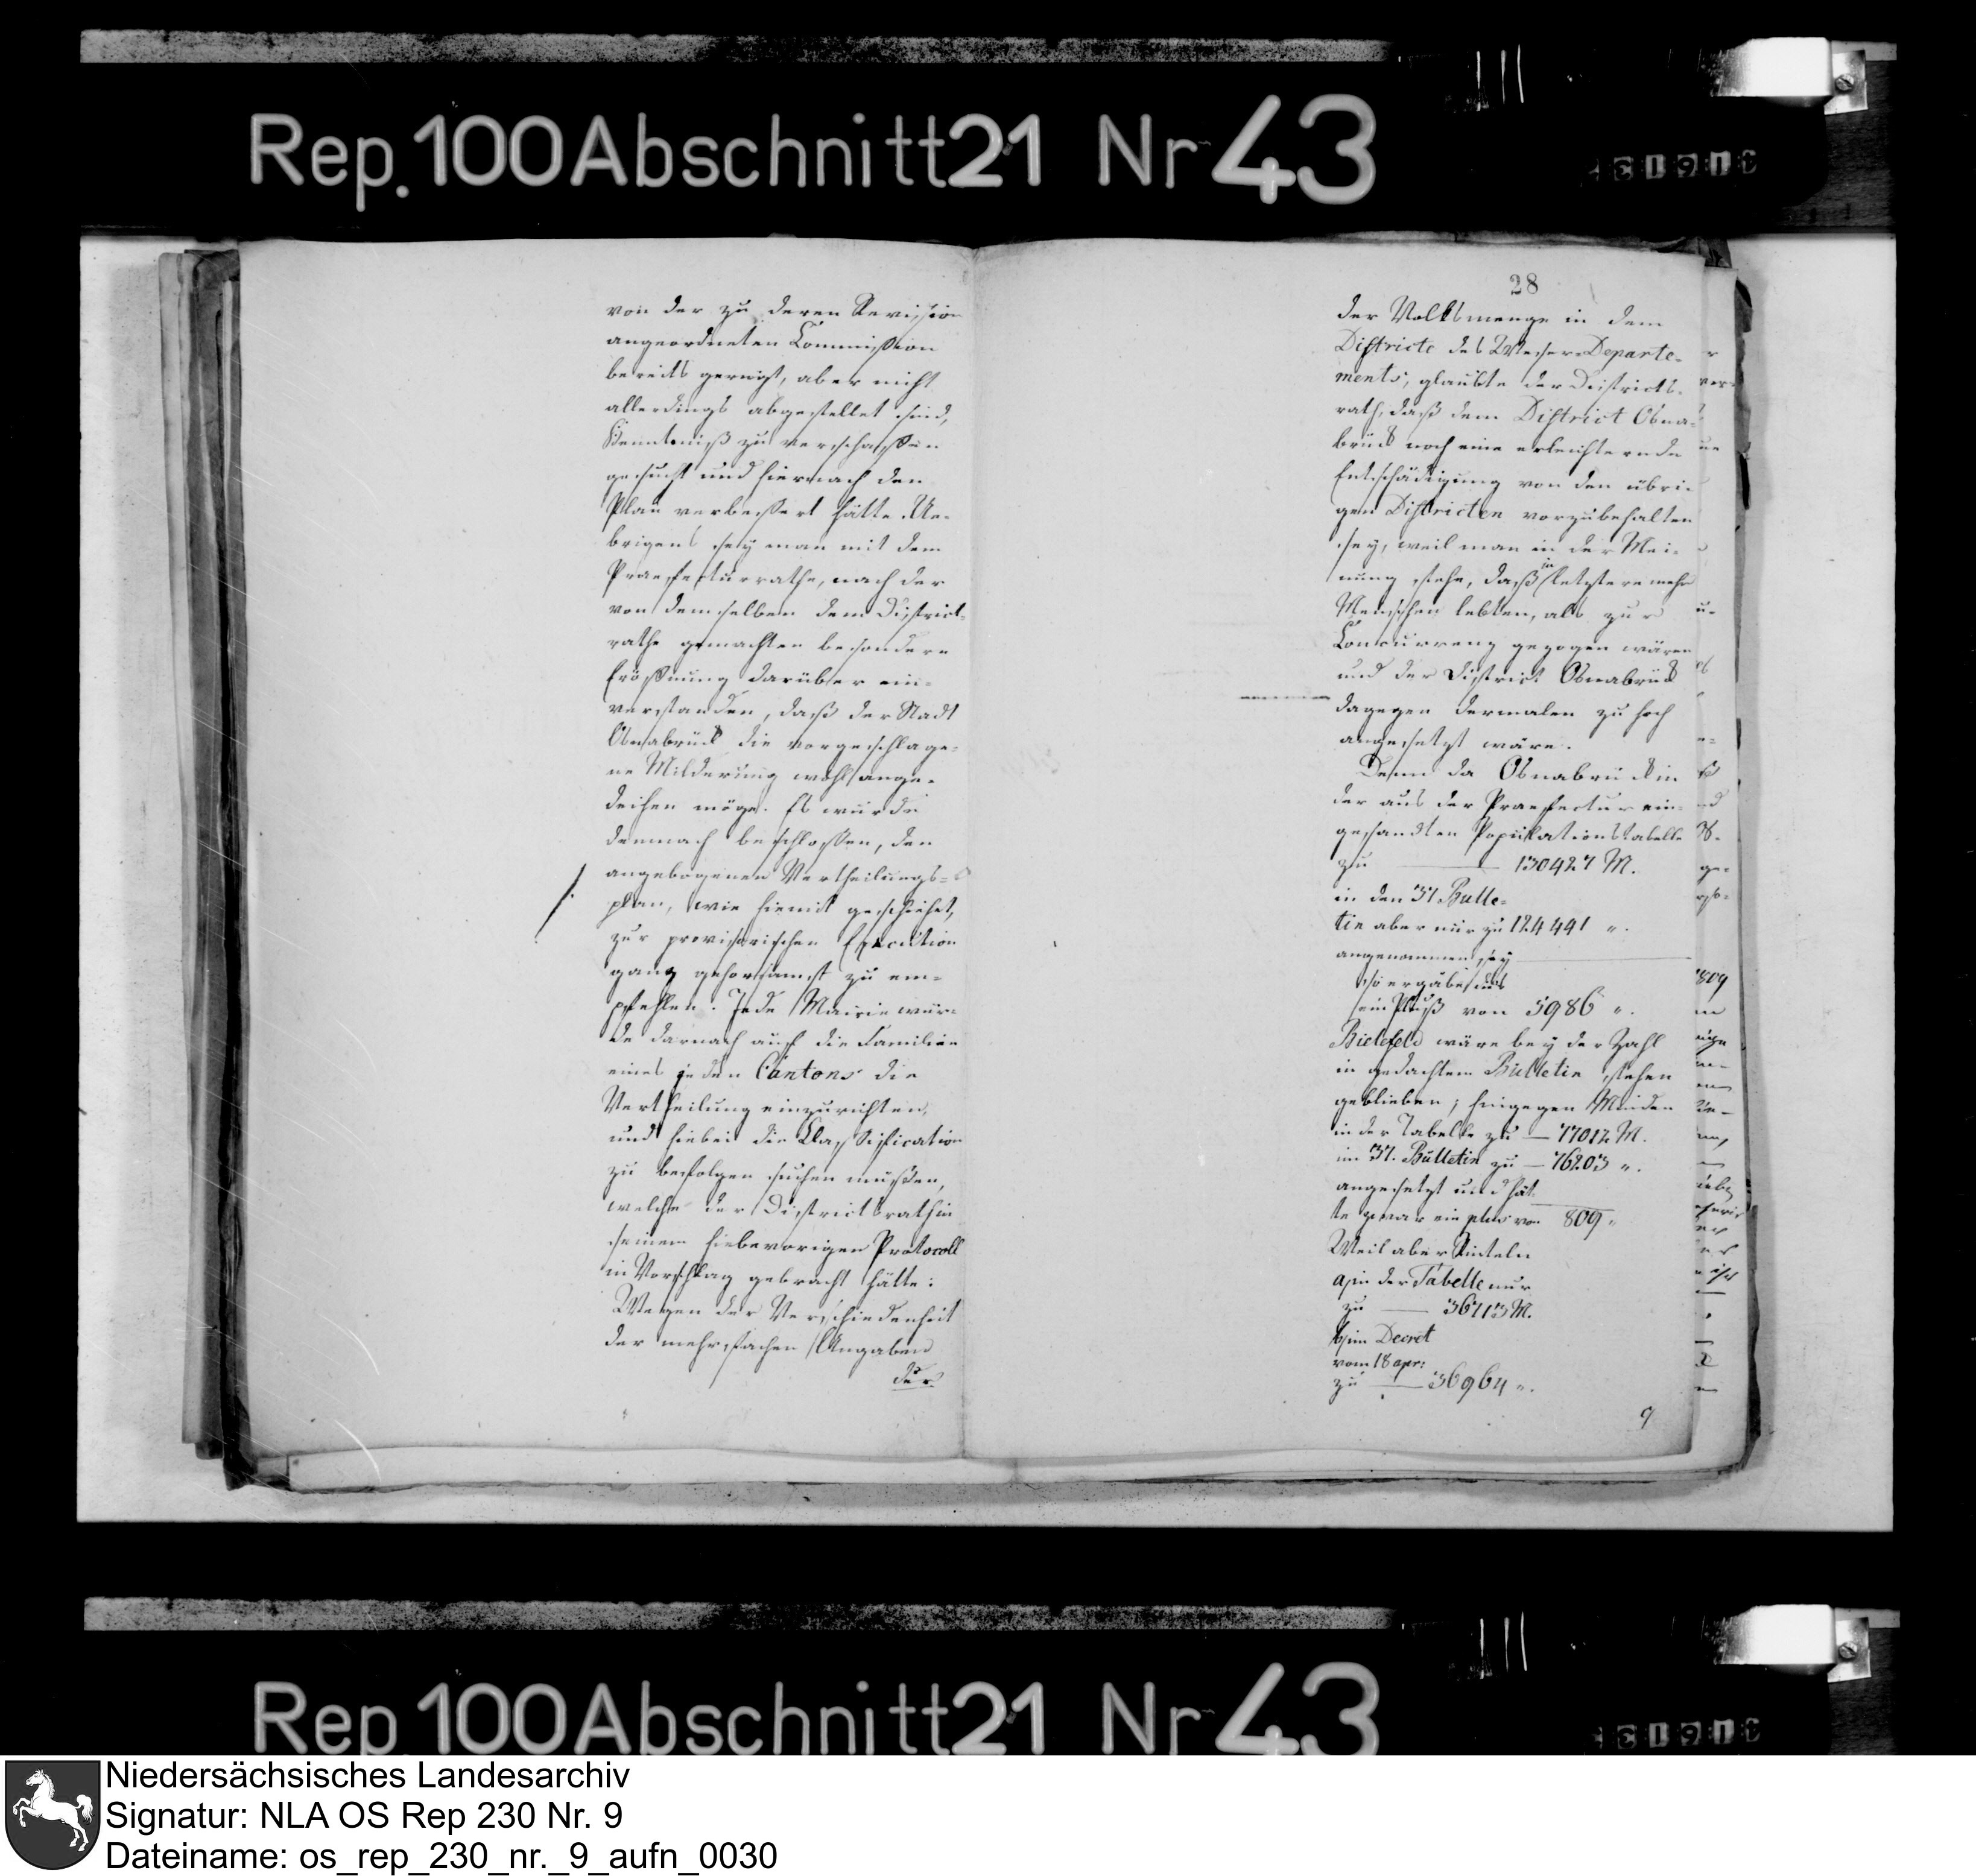 Rep. 100 Abschnitt 21 Nr 43
von der zu deren Revision
angeordneten Commission
bereits gerügt, aber nicht
allerdings abgestellet sind,
Kenntniß zu verschaffen
gesucht und hiernach den
Plan verbessert hätte. Ue-
brigens sey man mit dem
Praefecturrathe, nach der
von demselben dem District-
rathe gemachten besondern
Eröffnung darüber ein-
verstanden, daß der Stadt
Osnabrück die vorgeschlage-
ne Milderung wohl ange-
deihen möge. Es wurde
demnach beschlossen, den
angebogenen Vertheilungs-
plan, wie hiemit geschiehet,
zur provisorischen Execution
ganz gehorsamst zu em-
pfehlen. Jede Mairie wür-
de darnach auf die Familien
eines jeden Cantons die
Vertheilung einzurichten,
und hiebei die Classification
zu befolgen suchen müßen,
welche der Districtsrath in
seinem hiebevorigen Protocoll
in Vorschlag gebracht hätte:
Wegen der Verschiedenheit
der mehrfachen Angaben
der
28
der Volksmenge in dem
Districte des Weser-Departe-
ments, glaubte der Districts-
rath, daß dem District Osna-
brück noch eine erleichternde
Entschädigung von den übri-
gen Districten vorzubehalten
sey, weil man in der Mei-
nung stehe, daß in letztere mehr
Menschen lebten, als zur
Concurrenz gezogen wären
und der District Osnabrück
dagegen dermalen zu hoch
angesetzt wäre.
Denn da Osnabrück in
der aus der Praefectur ein-
gesandten Populationstabelle
zu — 130427 M.
in den 31 Bulle-
tin aber nur zu 124441 „.
angenommen sey
so ergäbe sich
ein Pluß von 5986 „.
Bielefeld wäre bey der Zahl
in gedachtem Bulletin stehen
geblieben; hingegen Minden
in der Tabelle zu — 77012 M.
im 31. Bulletin zu — 76203 „.
angesetzt und hät-
te zwar ein plus von 809 „
Weil aber Rinteln
a, in der Tabelle nur
zu — 36713 M.
b, im Decret
vom 18 apr:
zu — 36964 „.
9
Rep 100 Abschnitt 21 Nr 43
Niedersächsisches Landesarchiv
Signatur: NLA OS Rep 230 Nr. 9
Dateiname: os_rep_230_nr._9_aufn_0030